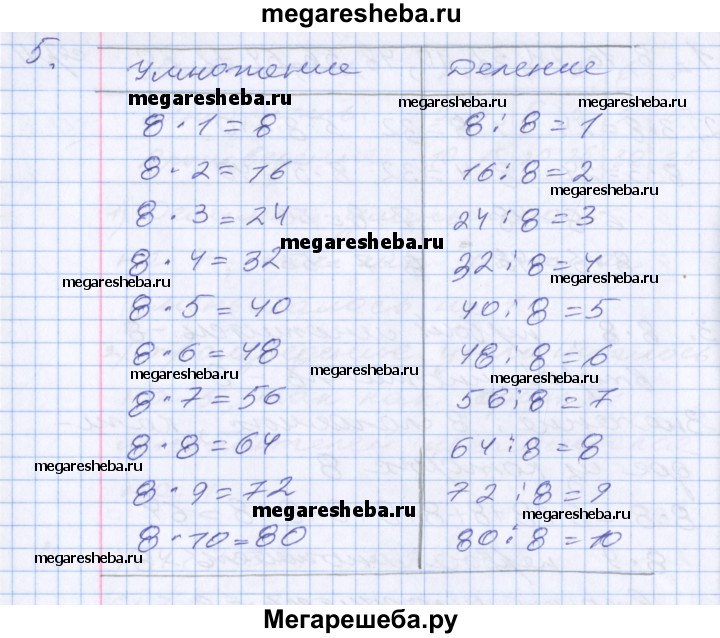 megaresheba.ru
5. Умножение Деление
megaresheba.ru megaresheba.ru megaresheba.ru
8 · 1 = 8 8 : 8 = 1
8 · 2 = 16 16 : 8 = 2
megaresheba.ru
8 · 3 = 24 24 : 8 = 3
megaresheba.ru
8 · 4 = 32 32 : 8 = 4
megaresheba.ru megaresheba.ru
8 · 5 = 40 40 : 8 = 5
8 · 6 = 48 48 : 8 = 6
megaresheba.ru megaresheba.ru
8 · 7 = 56 56 : 8 = 7
8 · 8 = 64 64 : 8 = 8
megaresheba.ru
8 · 9 = 72 72 : 8 = 9
megaresheba.ru megaresheba.ru
8 · 10 = 80 80 : 8 = 10
Мегарешеба.ру